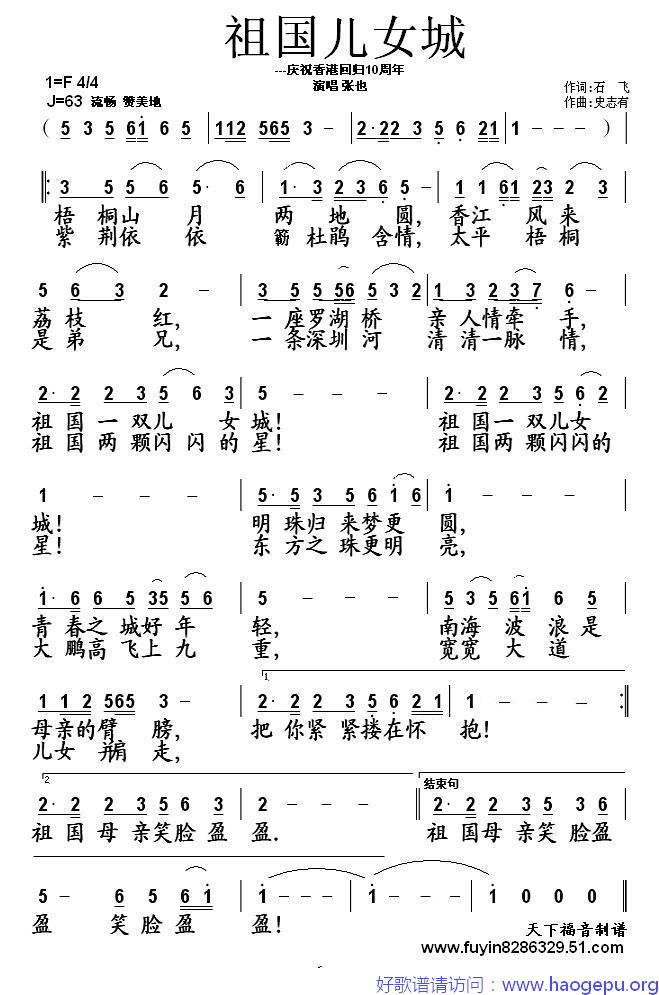 祖国儿女城
---庆祝香港回归10周年
演唱 张也
1=F 4/4
J=63 流畅 赞美地
作词:石 飞
作曲:史志有
( 5 3 5 61 6 5 | 112 565 3 | 2· 22 3 5 6 21 | 1 - - - )
3 5 5 6 5· 6 | 1· 3 2 3 6 5 - | 1 1 61 23 2 3 |
梧 桐山 月 两 地 圆, 香江 风来
紫 荆依 依 簕 杜鹃 含情, 太平 梧桐
5 6 3 2 - | 3 5 5 56 5 3 2 | 1 3 2 3 7 6 - |
荔 枝 红, 一 座罗 湖 桥 亲 人情牵 手,
是 弟 兄, 一 条深 圳 河 清 清一脉 情,
2· 2 2 3 5 6 3 | 5 - - - | 2· 2 2 3 5 5 6 |
祖 国 一 双儿 女 城! 祖 国一 双儿女
祖 国 两 颗闪 闪 的 星! 祖 国 两颗闪闪的
1 - - - | 5· 5 3 5 6 1 6 | 1 - - - |
城! 明 珠归 来梦更 圆,
星! 东 方之 珠更明 亮,
1· 6 6 5 35 5 6 | 5 - - - | 5 3 5 61 6 5 |
青 春之 城好 年 轻, 南海 波 浪 是
大 鹏高 飞上 九 重, 宽宽 大 道
1 1 2 565 3 | 1. 2· 2 2 3 5 6 2 1 | 1 - - - :‖
母亲的臂 膀, 把 你紧 紧搂在怀 抱!
儿女 并肩 走,
2. 2· 2 2 3 5 6 3 | 2 - - - | 结束句 2· 2 2 3 5 6 3 |
祖 国 母 亲笑脸 盈 盈. 祖 国母 亲笑 脸盈
5 - 6 5 6 1 | 1 - - - | 1 - - - | 1 0 0 0 ‖
盈 笑 脸 盈 盈!
天下福音制谱
www.fuyin8286329.51.com
好歌谱请访问：www.haogepu.org